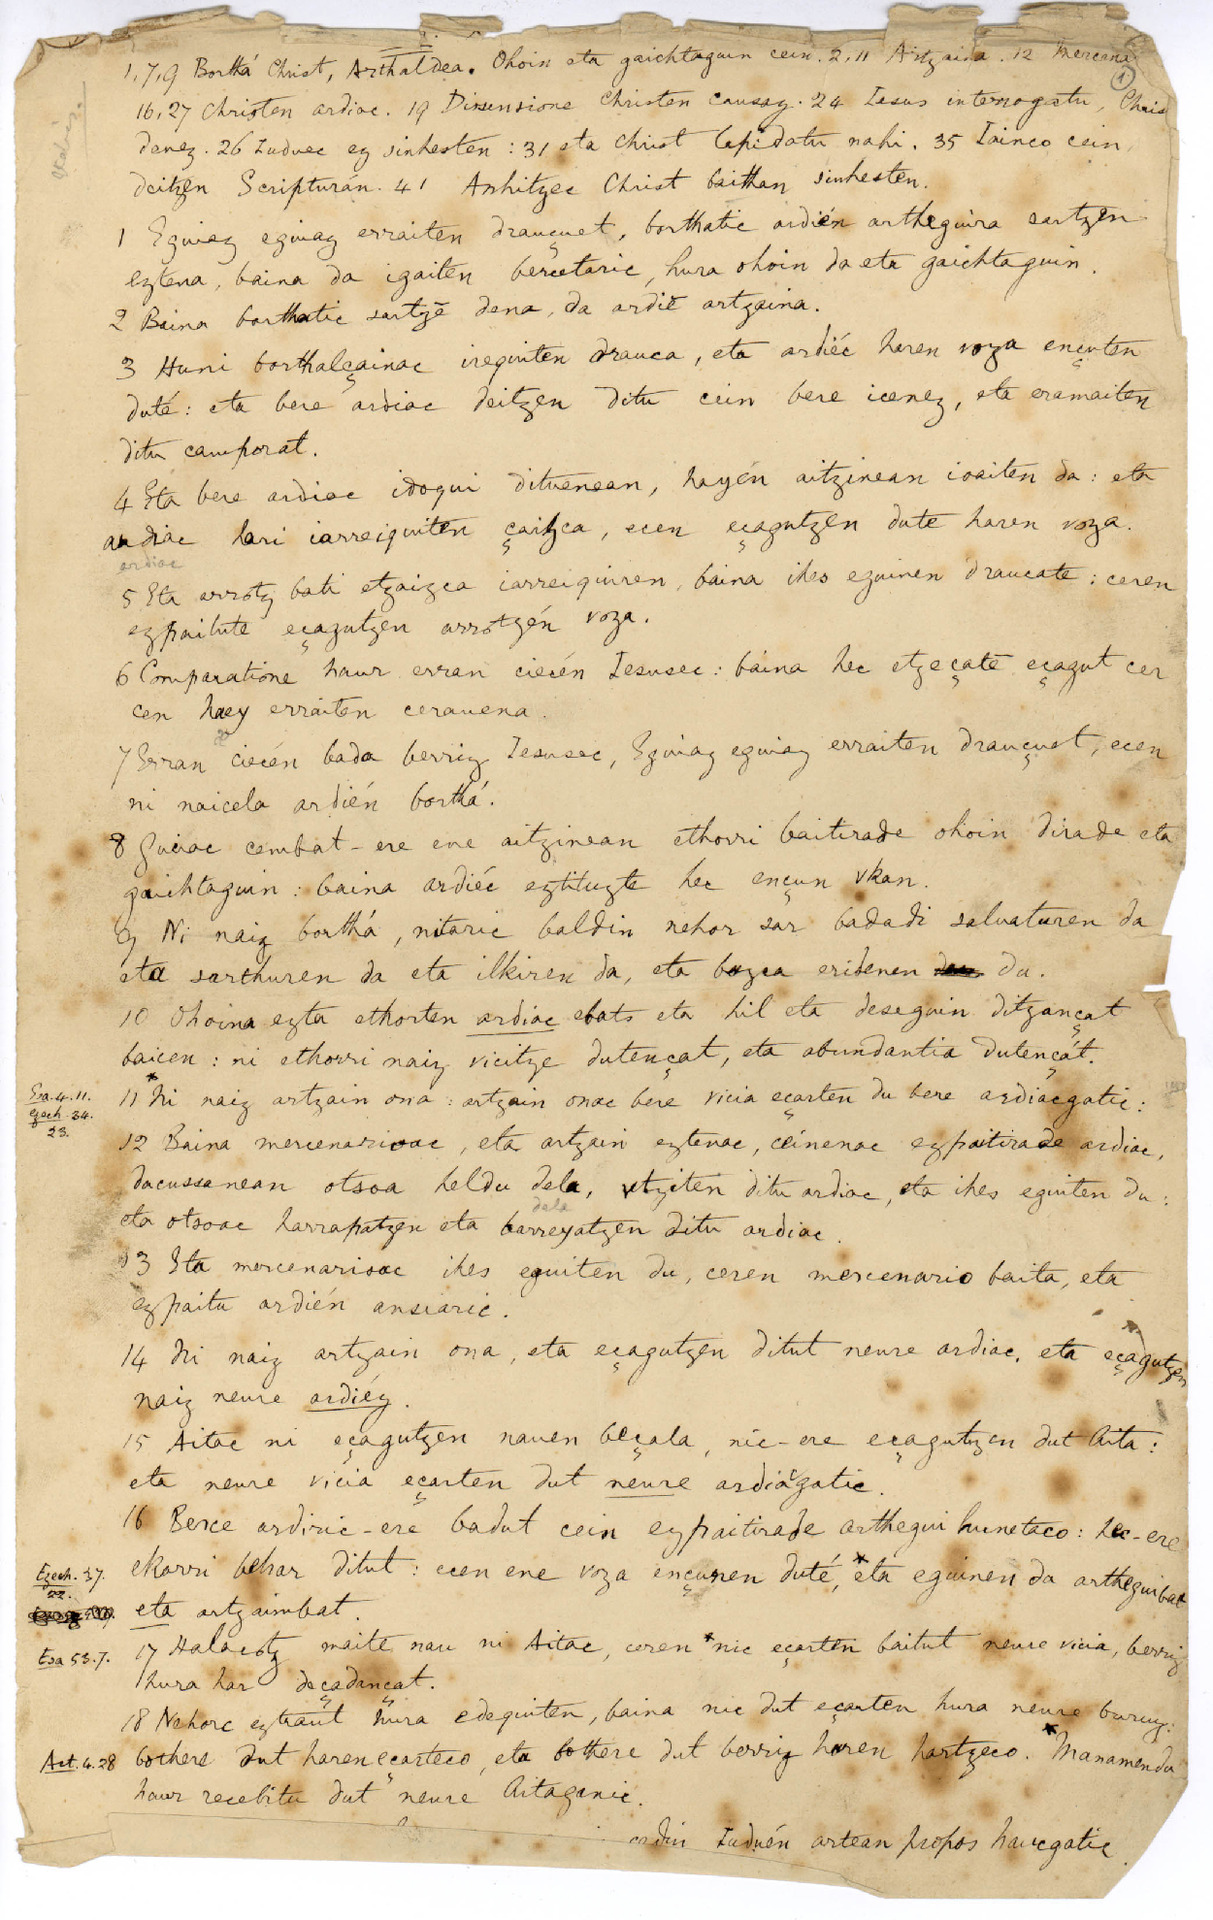 1,7,9 Borthá Christ, Arthaldea. Ohoin eta gaichtaguin cein. 2,11 Artzaina. 12 Mercena
16,27 Christen ardiac. 19 Dissensione Christen causaz. 24 Iesus interrogatu, Chris
denez. 26 Iuduec ez sinhesten: 31 eta Christ lapidatu nahi. 35 Iainco cein
deitzen Scripturán. 41 Anhitzec Christ baithan sinhesten.
1 Eguiaz eguiaz erraiten drauçuet, borthatic ardién artheguira sartzen
eztena, baina da igaiten bercetaric, hura ohoin da eta gaichtaguin.
2 Baina borthatic sartzē dena, da ardiē artzaina.
3 Huni borthalçainac irequiten drauca, eta ardiéc haren voza ençuten
duté: eta bere ardiac deitzen ditu cein bere icenez, eta eramaiten
ditu camporat.
4 Eta bere ardiac idoqui dituenean, hayén aitzinean ioaiten da: eta
ardiac hari iarreiquiten çaizca, ecen eçagutzen dute haren voza.
ardiac
5 Eta arrotz bati etzaizca iarreiquiren, baina ihes eguinen draucate: ceren
ezpaitute eçagutzen arrotzén voza.
6 Comparatione haur erran ciecén Iesusec: baina hec etzeçatē eçagut cer
cen haey erraiten cerauena.
7 Erran ciecén bada berriz Iesusec, Eguiaz eguiaz erraiten drauçuet, ecen
ni naicela ardién borthá.
8 Guciac cembat-ere ene aitzinean ethorri baitirade ohoin dirade eta
gaichtaguin: baina ardiéc eztituzte hec ençun vkan.
9 Ni naiz borthá, nitaric baldin nehor sar badadi saluaturen da
eta sarthuren da eta ilkiren da, eta bazca eridenen du.
10 Ohoina ezta ethorten ardiac ebats eta hil eta deseguin ditzançat
baicen: ni ethorri naiz vicitze dutençat, eta abundantia dutençát.
Esa. 4.11.
Ezech. 34.
23.
11 *Ni naiz artzain ona: artzain onac bere vicia eçarten du bere ardiacgatic:
12 Baina mercenarioac, eta artzain eztenac, ceinenac ezpaitirade ardiac,
dacussanean otsoa heldu dela, vtziten ditu ardiac, eta ihes eguiten du:
dela
eta otsoac harrapatzen eta barreyatzen ditu ardiac.
13 Eta mercenarioac ihes eguiten du, ceren mercenario baita, eta
ezpaitu ardién ansiaric.
14 Ni naiz artzain ona, eta eçagutzen ditut neure ardiac, eta eçagutzen
naiz neure ardiéz.
15 Aitac ni eçagutzen nauen beçala, nic-ere eçagutzen dut Aita:
eta neure vicia eçarten dut neure ardiacgatic.
16 Berce ardiric-ere badut cein ezpaitirade arthegui hunetaco: hec-ere
Ezech. 37.
22.
ekarri behar ditut: ecen ene voza ençunen duté, *eta eguinen da artheguibat
eta artzaimbat.
Esa 53.7.
17 Halacotz maite nau ni Aitac, ceren *nic eçarten baitut neure vicia, berriz
hura har deçadançat.
18 Nehorc eztraut hura edequiten, baina nic dut eçarten hura neure buruz:
Act. 4.28
bothere dut haren eçarteco, eta bothere dut berriz haren hartzeco. *Manamendu
haur recebitu dut neure Aitaganic.
Iuduén artean propos hauegatic.